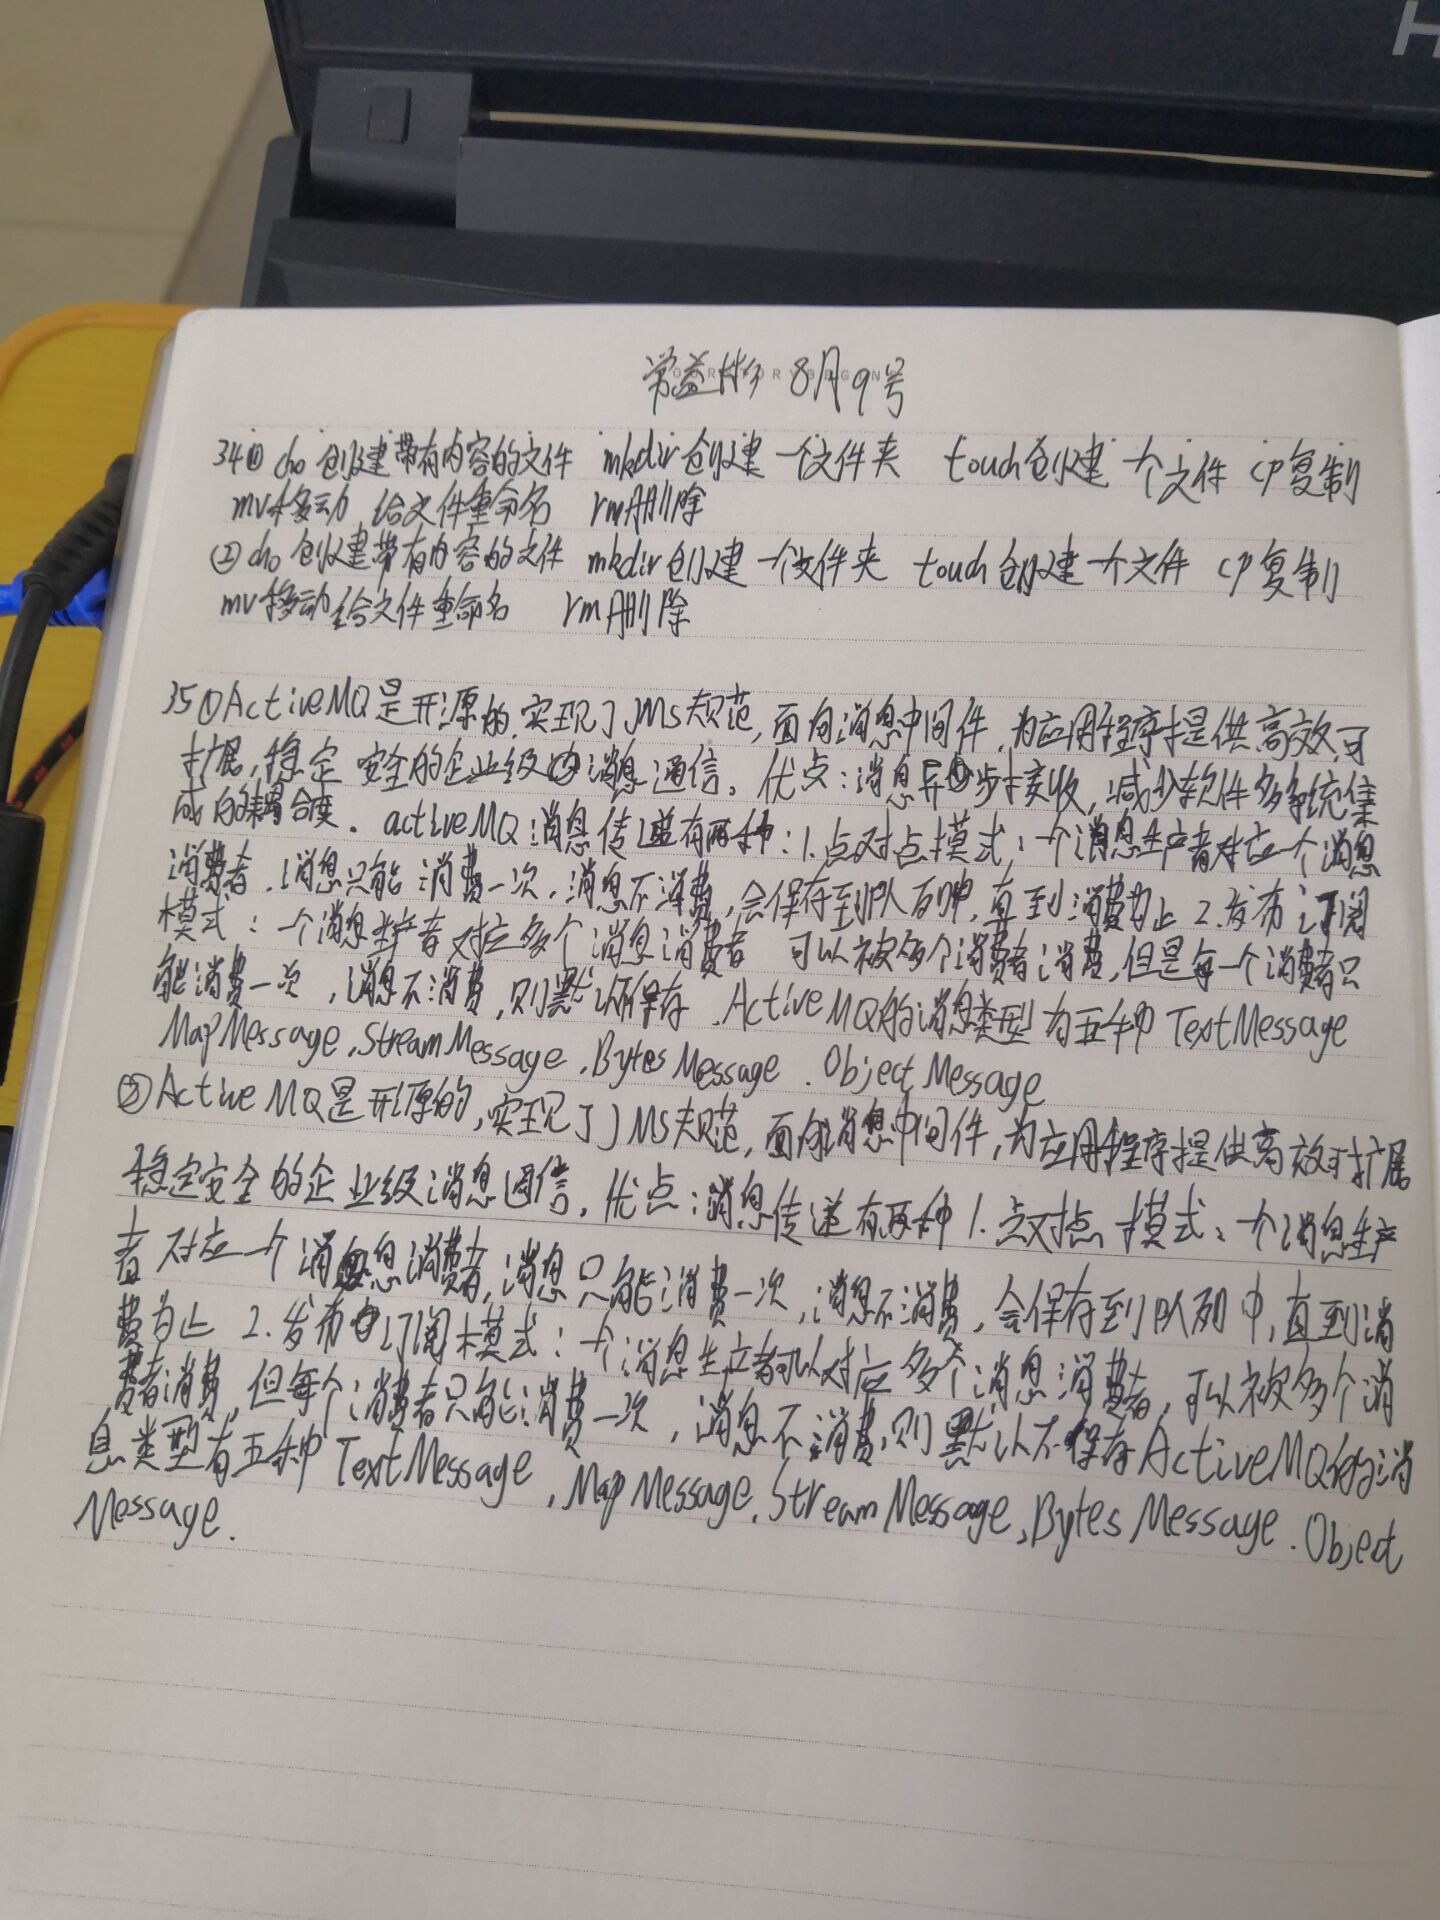 8月9号
34① cho 创建带有内容的文件 mkdir创建一个文件夹 touch创建一个文件 cp复制
mv移动 给文件重命名 rm删除
② cho 创建带有内容的文件 mkdir创建一个文件夹 touch创建一个文件 cp复制
mv移动给文件重命名 rm删除
35①ActiveMQ是开源的,实现了JMS规范,面向消息中间件,为应用程序提供高效,可
扩展,稳定 安全的企业级消息通信。优点:消息异步接收,减少软件多系统集
成的耦合度. activeMQ消息传递有两种:1.点对点模式:一个消息生产者对应一个消息
消费者.消息只能消费一次,消息不消费,会保存到队列中,直到消费为止 2.发布订阅
模式:一个消息生产者对应多个消息消费者 可以被多个消费者消费,但是每一个消费者只
能消费一次,消息不消费,则默认不保存.ActiveMQ的消息类型为五种 TextMessage
MapMessage,StreamMessage,BytesMessage.ObjectMessage
②ActiveMQ是开源的,实现了JMS规范,面向消息中间件,为应用程序提供高效可扩展
稳定安全的企业级消息通信,优点:消息传递有两种 1.点对点 模式:一个消息生产
者对应一个消息消费者,消息只能消费一次,消息不消费,会保存到队列中,直到消
费为止 2.发布订阅模式:一个消息生产者可以对应多个消息消费者,可以被多个消
费者消费,但每个消费者只能消费一次,消息不消费,则默认不保存ActiveMQ的消
息类型有五种TextMessage,MapMessage,StreamMessage,BytesMessage.Object
Message.